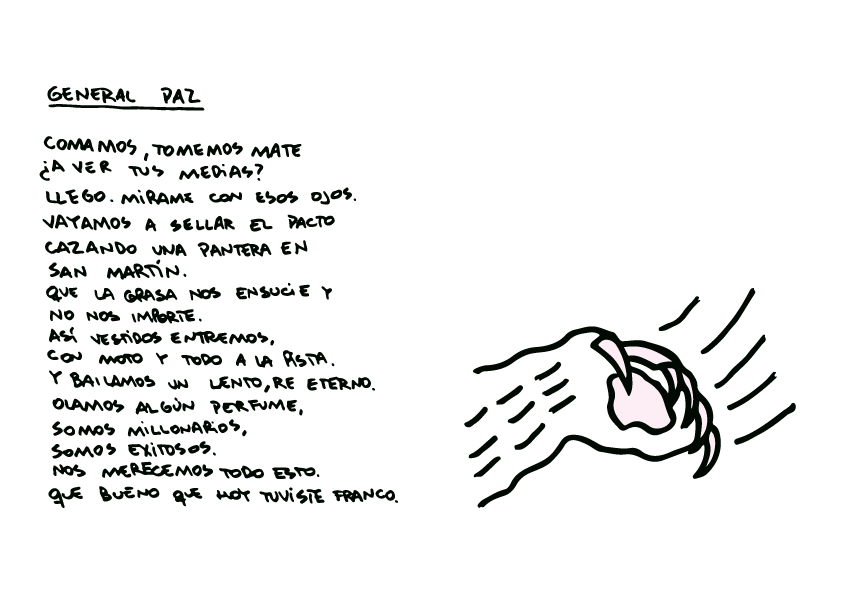 GENERAL PAZ
COMAMOS, TOMEMOS MATE
¿A VER TUS MEDIAS?
LLEGO. MIRAME CON ESOS OJOS.
VAYAMOS A SELLAR EL PACTO
CAZANDO UNA PANTERA EN
SAN MARTÍN.
QUE LA GRASA NOS ENSUCIE Y
NO NOS IMPORTE.
ASÍ VESTIDOS ENTREMOS,
CON MOTO Y TODO A LA PISTA.
Y BAILAMOS UN LENTO, RE ETERNO.
OLAMOS ALGÚN PERFUME,
SOMOS MILLONARIOS,
SOMOS EXITOSOS.
NOS MERECEMOS TODO ESTO.
QUE BUENO QUE HOY TUVISTE FRANCO.